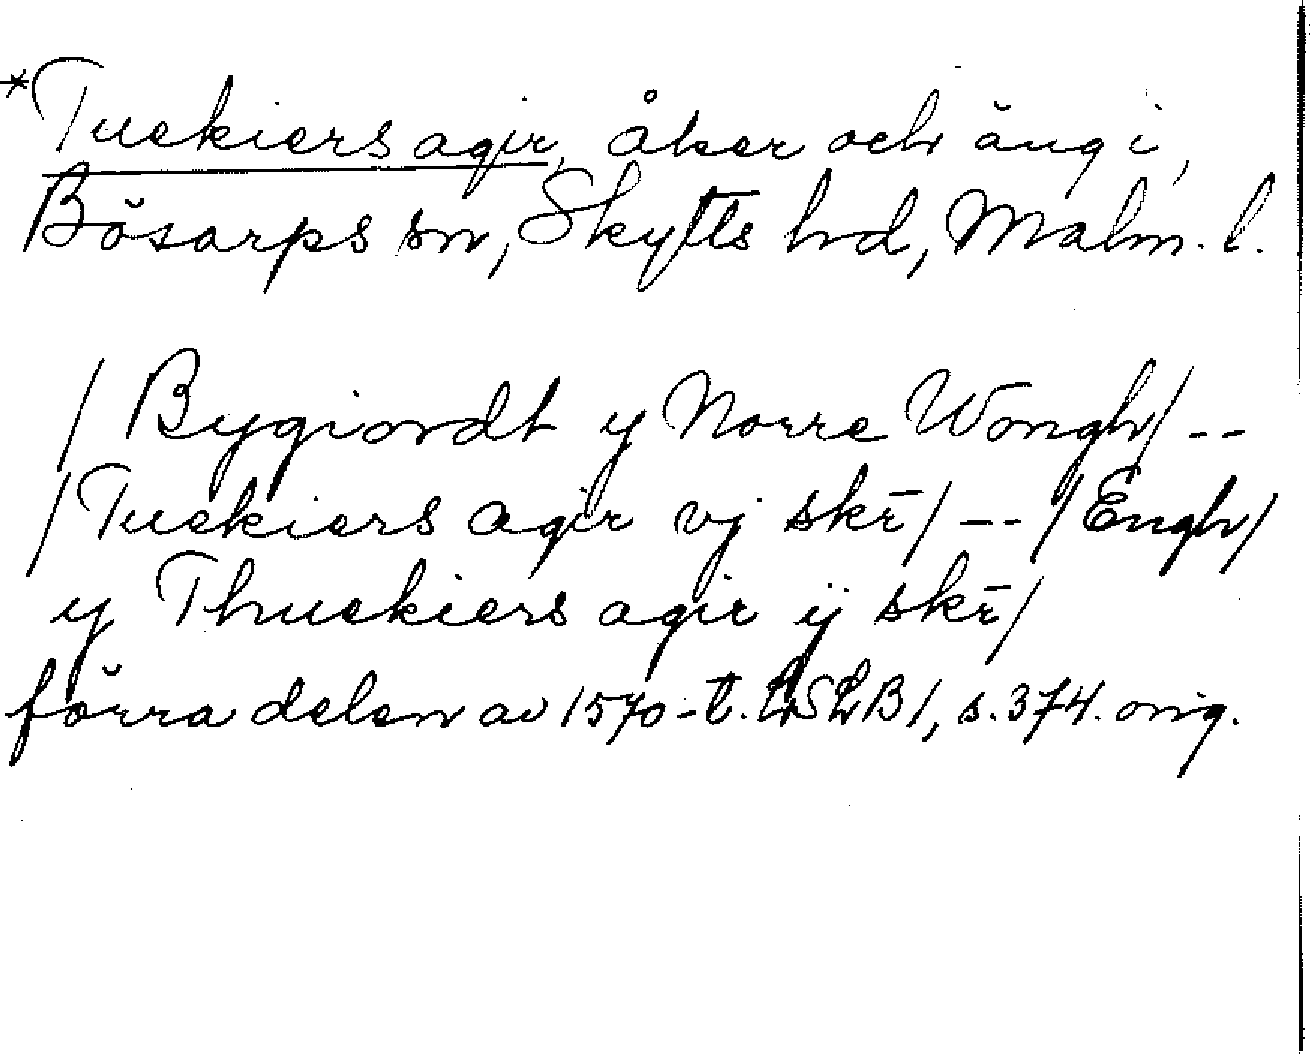 *Tuekiers agir, åker och äng i,
Bösarps sn, Skytts hd, Malm. l.
/ Bygiordt y Norre Wongh/ --
/Tuekiers agir vj skr̄/ -- /Engh/
y Thuekiers agir ij skr̄/
förra delen av 1570-t. LSLB1, s. 374. orig.